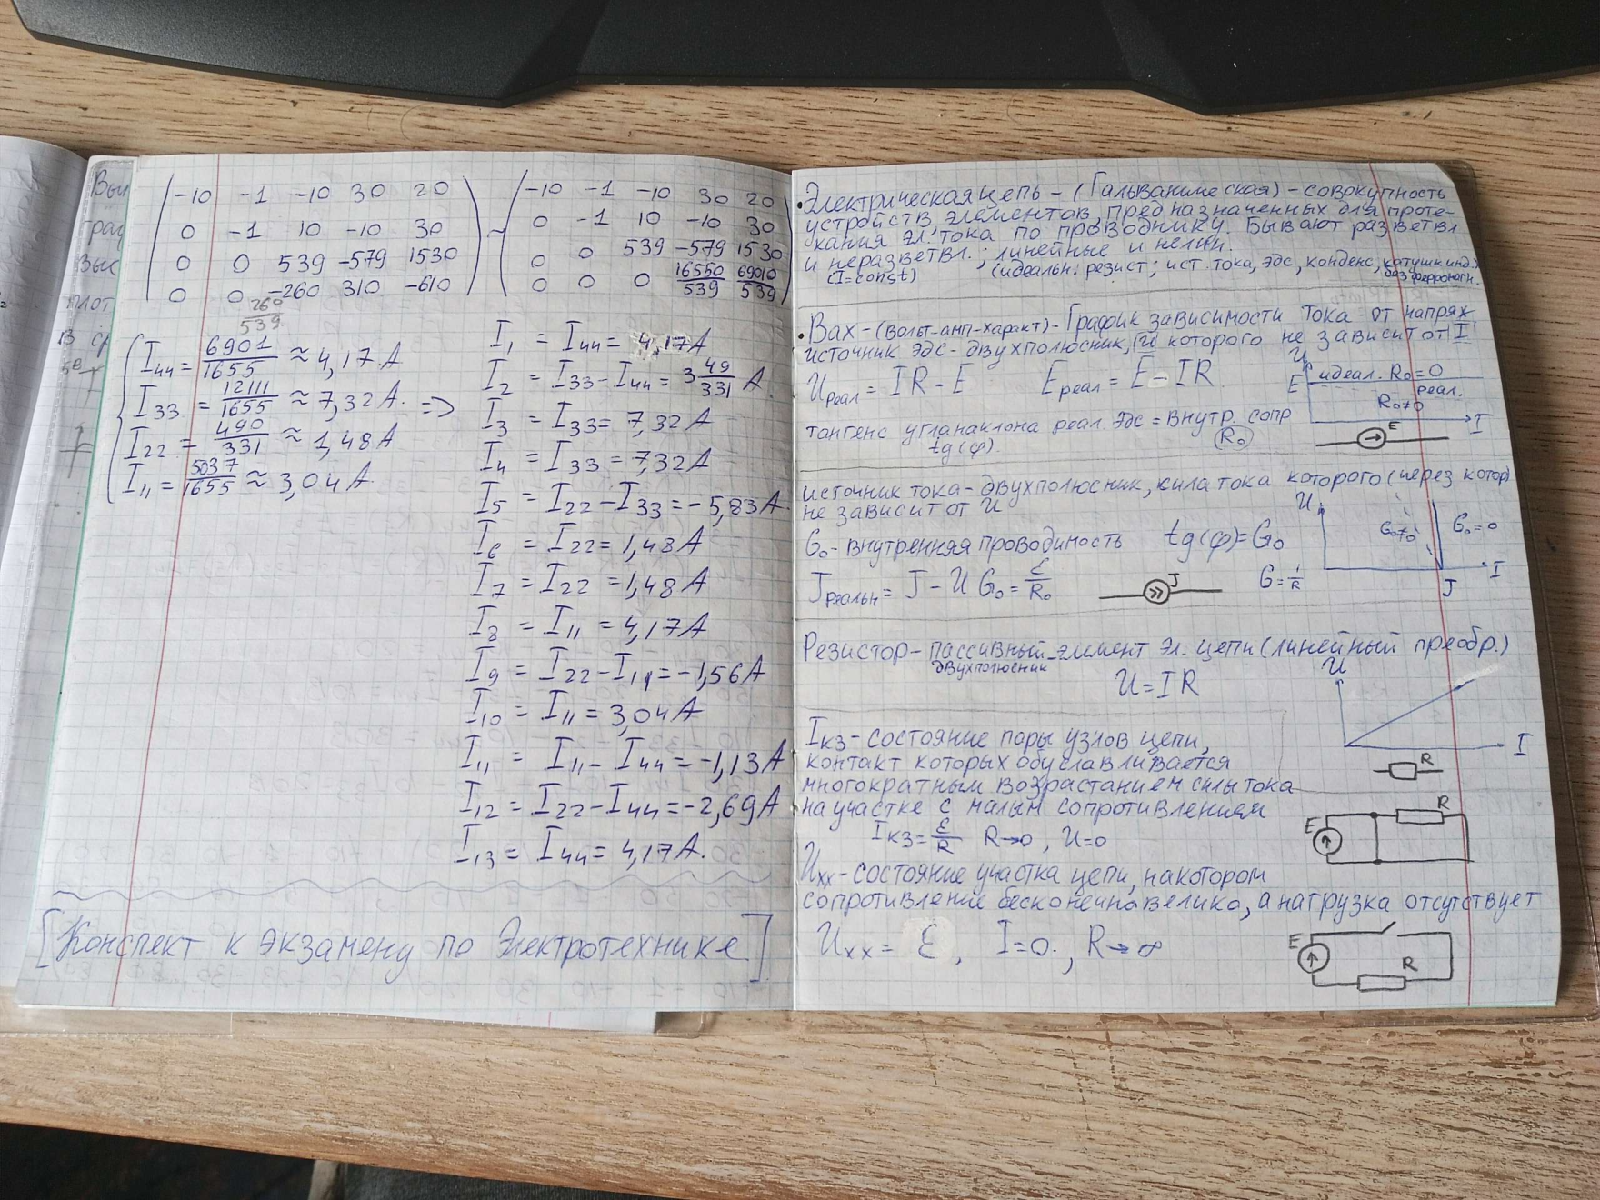 -10 -1 -10 30 20
0 -1 10 -10 30
0 0 539 -579 1530
0 0 -260 310 -610
260
539
~
-10 -1 -10 30 20
0 -1 10 -10 30
0 0 539 -579 1530
0 0 0 16550/539 69010/539
I44 = 6901/1655 ≈ 4,17A
I33 = 12111/1655 ≈ 7,32A. =>
I22 = 490/331 ≈ 1,48A
I11 = 5037/1655 ≈ 3,04A.
I1 = I44 = 4,17A
I2 = I33 - I44 = 3 49/331 A.
I3 = I33 = 7,32A
I4 = I33 = 7,32A
I5 = I22 - I33 = -5,83A.
I6 = I22 = 1,48A
I7 = I22 = 1,48A
I8 = I11 = 4,17A
I9 = I22 - I11 = -1,56A
I10 = I11 = 3,04A
I11 = I11 - I44 = -1,13A
I12 = I22 - I44 = -2,69A
I13 = I44 = 4,17A.
[Конспект к экзамену по Электротехнике]
•Электрическая цепь - (Гальваническая) - совокупность
устройств, элементов, предназначенных для проте-
кания эл. тока по проводнику. Бывают разветвл
и неразветвл.; линейные и нелин.
(I=const) (идеальн: резист; ист. тока, эдс, конденс, катушки инд.
без ферромагн.
•Вах - (Вольт-амп-характ) - График зависимости тока от напряж
источник эдс - двухполюсник, U которого не зависит от I
Uреал = IR - E Eреал = E - IR
U
E
идеал. R0=0
реал.
R0≠0
I
E
тангенс угла наклона реал эдс = внутр. сопр
tg(φ). R0
источник тока - двухполюсник, сила тока которого (через котор)
не зависит от U
U
G0≠0
G0=0
I
J
G0 - внутренняя проводимость tg(φ)=G0
Jреальн = J - U G0 = ε/R0
J
G=1/R
Резистор - пассивный элемент эл. цепи (линейный преобр.)
двухполюсник
U=IR
U
I
R
Iкз - состояние пары узлов цепи,
контакт которых обуславливается
многократным возрастанием силы тока
на участке с малым сопротивлением
Iкз = ε/R R→0, U=0
E
R
Uхх - состояние участка цепи, на котором
сопротивление бесконечно велико, а нагрузка отсутствует
Uхх = ε, I=0., R→∞
E
R